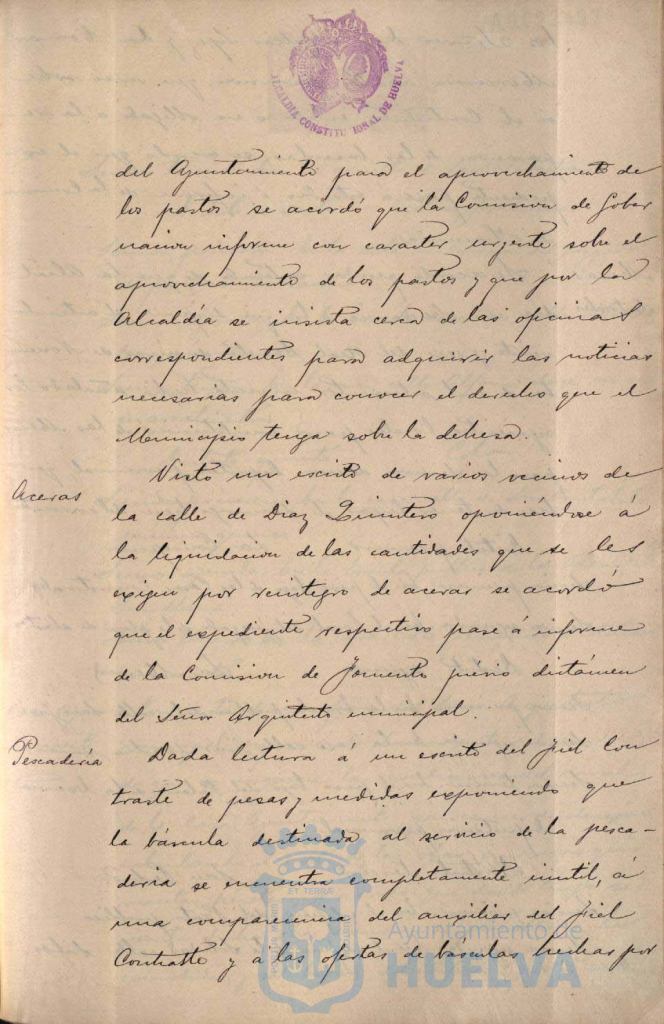 ALCALDIA CONSTITUCIONAL DE HUELVA
del Ayuntamiento para el aprovechamiento de
los pastos se acordó que la Comision de Gober
nacion informe con caracter urgente sobre el
aprovechamiento de los pastos y que por la
Alcaldía se insista cerca de las oficinas
correspondientes para adquirir las noticias
necesarias para conocer el derecho que el
Municipio tenga sobre la dehesa.
Aceras
Visto un escrito de varios vecinos de
la calle de Diaz Quintero oponiéndose á
la liquidacion de las cantidades que se les
exigen por reintegro de aceras se acordó
que el expediente respectivo pase á informe
de la Comision de Fomento prévio dictámen
del Señor Arquitecto municipal.
Pescadería
Dada lectura á un escrito del fiel Con
traste de pesas y medidas exponiendo que
la báscula destinada al servicio de la pesca-
deria se encuentra completamente inutil, á
una comparecencia del auxiliar del fiel
Contraste y á las ofertas de básculas hechas por
Ayuntamiento de
HUELVA